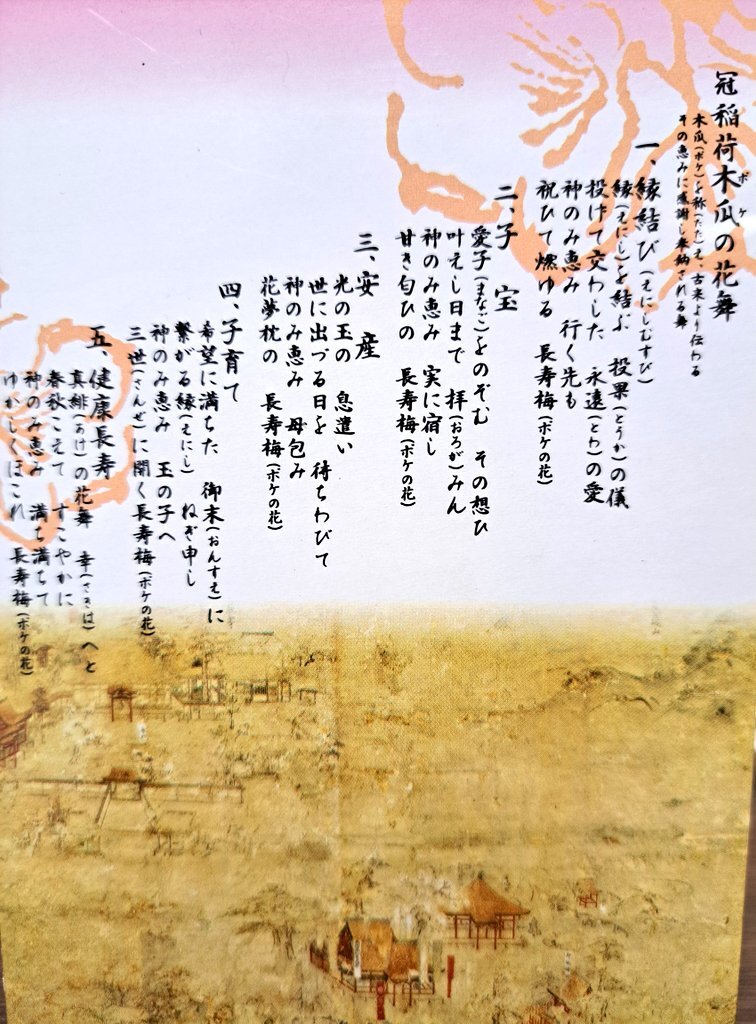 冠稲荷木瓜の花舞
ボケ
木瓜(ボケ)を称(たた)え、古来より伝わる
その恵みに感謝し奉納される舞
一、縁結び(えにしむすび)
縁(えにし)を結ぶ 投果(とうか)の儀
投げて交わした 永遠(とわ)の愛
神のみ恵み 行く先も
祝ひて燃ゆる 長寿梅(ボケの花)
二、子宝
愛子(まなご)をのぞむ その想ひ
叶えし日まで 拝(おろが)みん
神のみ恵み 実に宿し
甘き匂ひの 長寿梅(ボケの花)
三、安産
光の玉の 息遣い
世に出づる日を 待ちわびて
神のみ恵み 母包み
花夢枕の 長寿梅(ボケの花)
四、子育て
希望に満ちた 御末(おんすえ)に
繋がる縁(えにし) ねぎ申し
神のみ恵み 玉の子へ
三世(さんぜ)に開く長寿梅(ボケの花)
五、健康長寿
真緋(あけ)の花舞 幸(さきは)へと
春秋こえて すこやかに
神のみ恵み 満ち満ちて
ゆかしくほこれ 長寿梅(ボケの花)